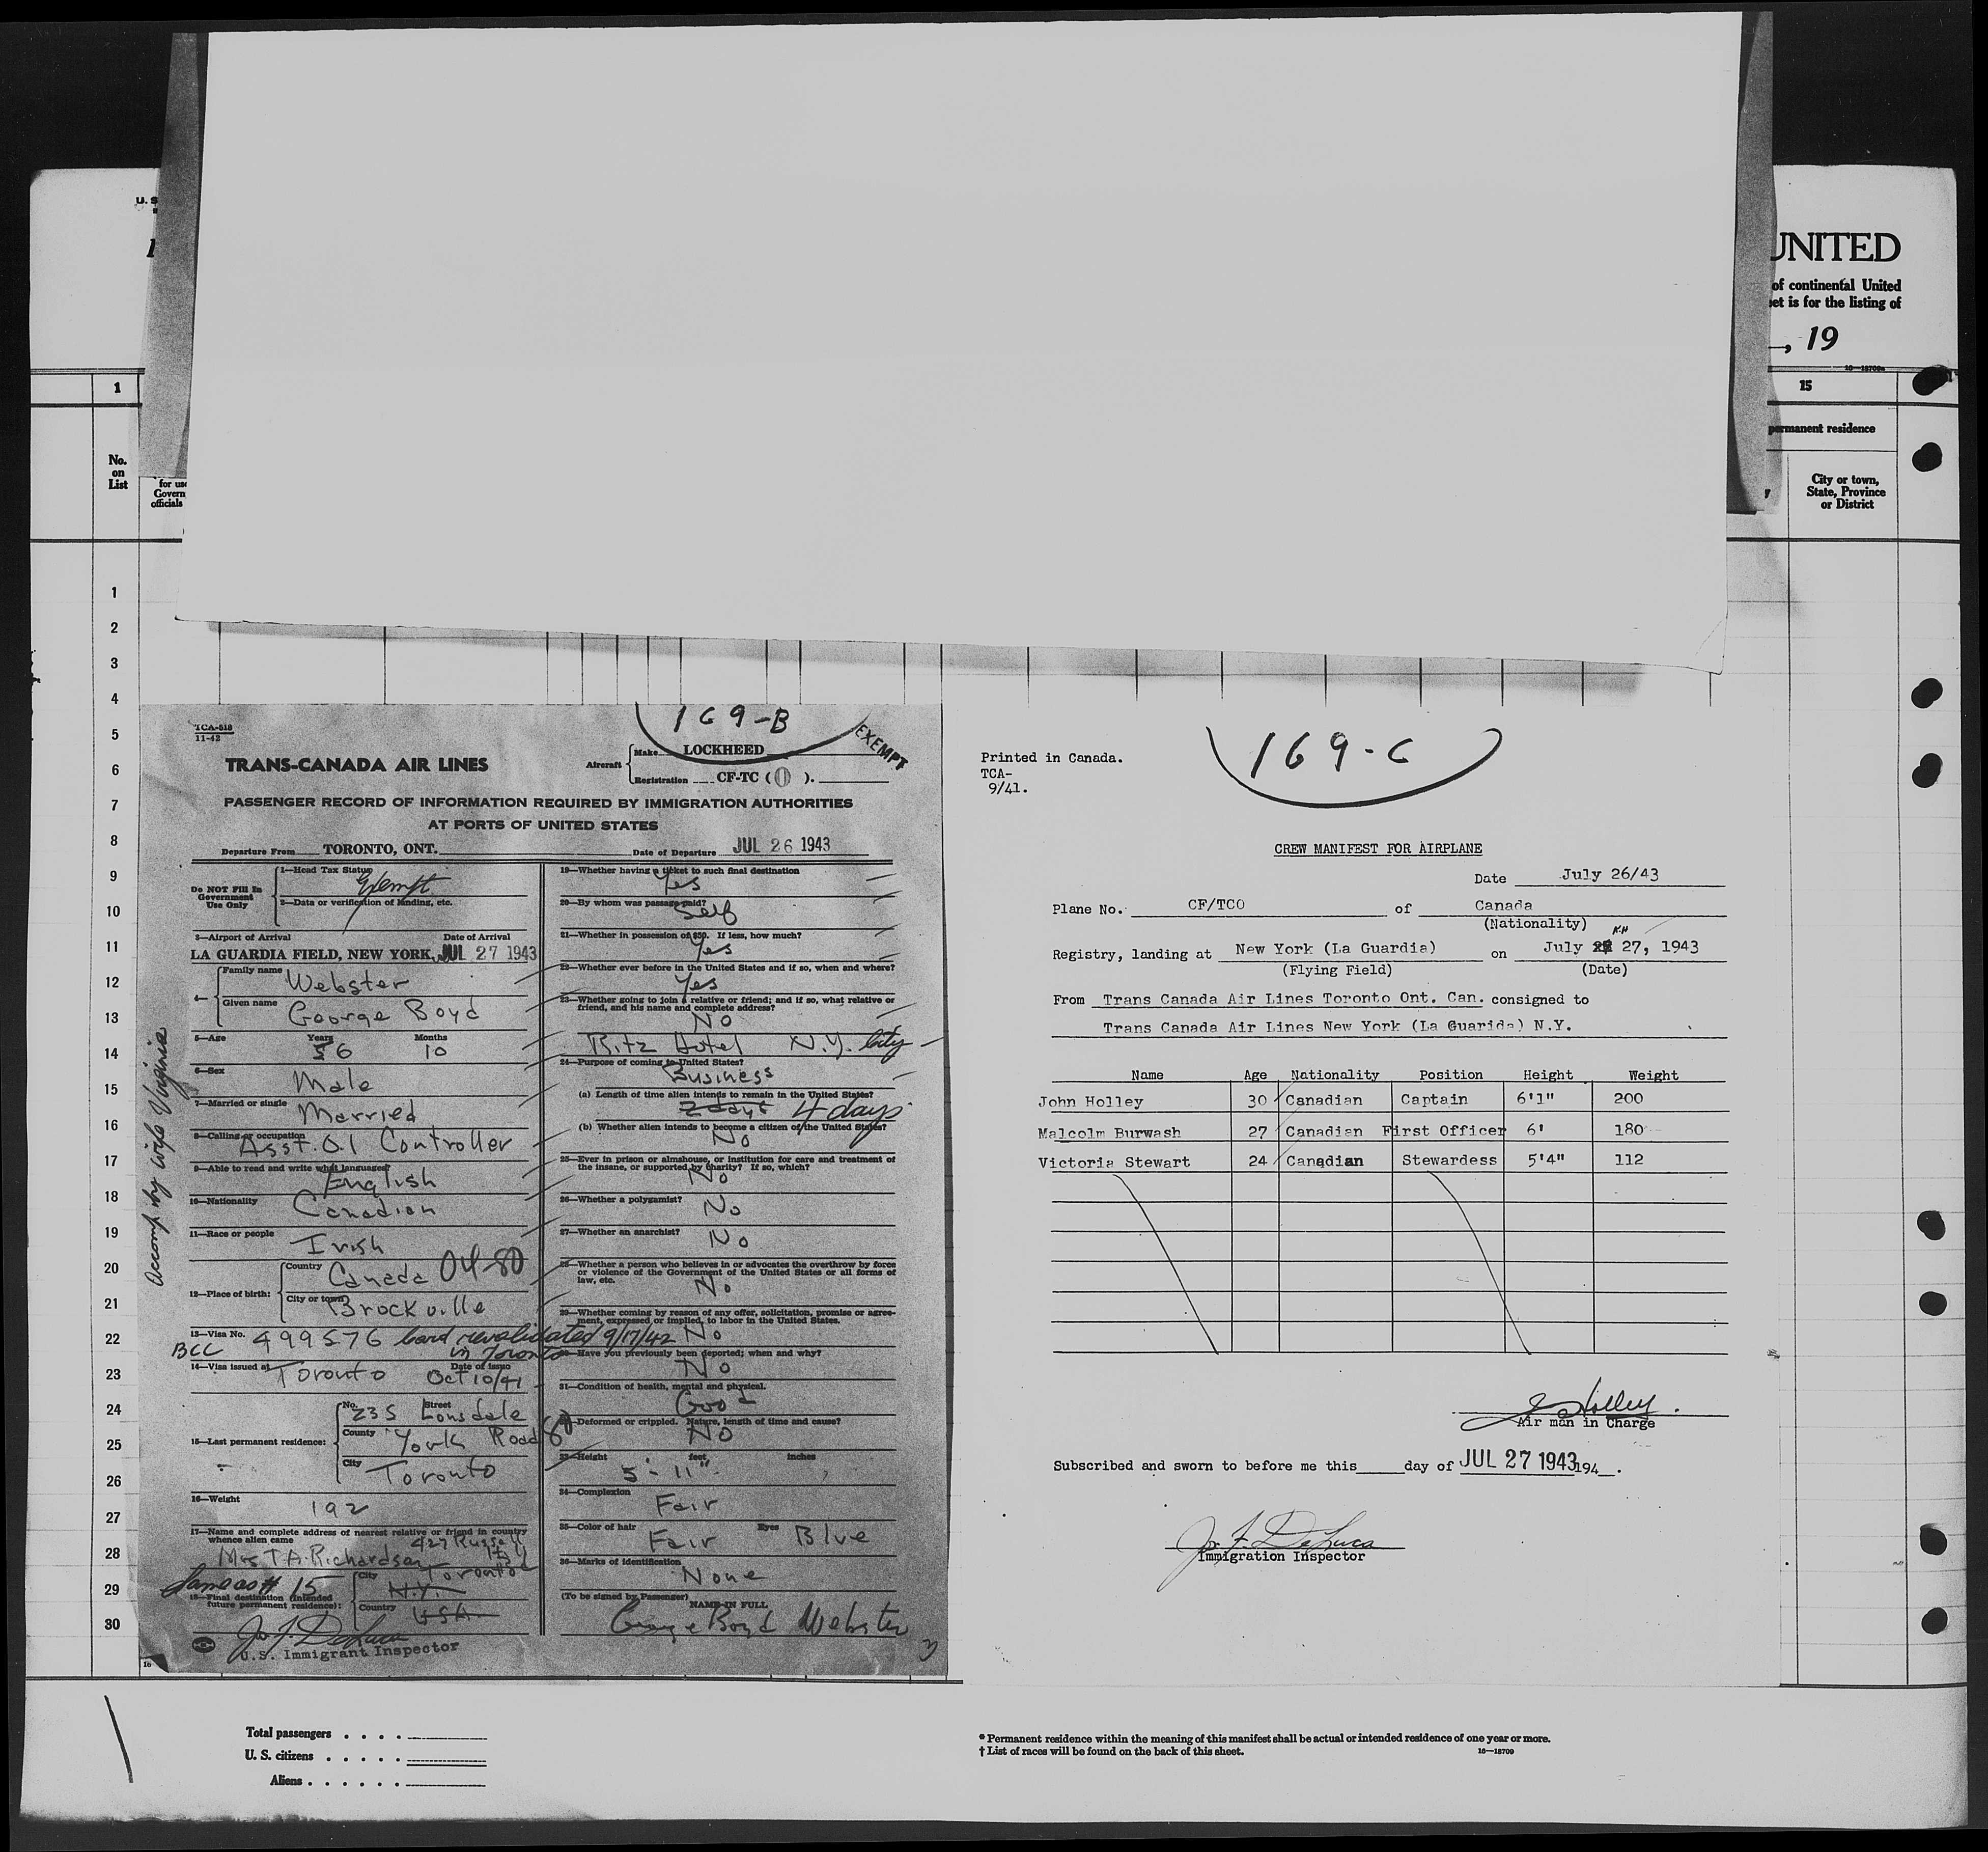 U. S
UNITED
of continental United
et is for the listing of
, 19
16—18709
1
15
permanent residence
No.
on
List
for use
Govern
officials
City or town,
State, Province
or District
1
2
3
4
5
6
7
8
9
10
11
12
13
14
15
16
17
18
19
20
21
22
23
24
25
26
27
28
29
30
169-B
EXEMPT
TCA-518
11-42
TRANS-CANADA AIR LINES
Aircraft
Make LOCKHEED
Registration CF-TC (O).
PASSENGER RECORD OF INFORMATION REQUIRED BY IMMIGRATION AUTHORITIES
AT PORTS OF UNITED STATES
Departure From TORONTO, ONT. Date of Departure JUL 26 1943
Do NOT Fill In
Government
Use Only
1—Head Tax Status
Exempt
2—Data or verification of landing, etc.
3—Airport of Arrival Date of Arrival
LA GUARDIA FIELD, NEW YORK, JUL 27 1943
4— Family name Webster
Given name George Boyd
5—Age Years 56 Months 10
6—Sex Male
7—Married or single Married
8—Calling or occupation
Asst. Oil Controller
9—Able to read and write what languages?
English
10—Nationality Canadian
11—Race or people Irish
12—Place of birth: Country Canada 04-80
City or town Brockville
13—Visa No. 499576 Card revalidated 9/17/42
BCC in Toronto
14—Visa issued at Toronto Date of issue Oct 10/41
15—Last permanent residence:
No. 235 Street Lonsdale
County York Road 80
City Toronto
16—Weight 192
17—Name and complete address of nearest relative or friend in country
whence alien came 427 Russell
Mrs T A. Richardson
Toronto
Same as # 15
18—Final destination (intended
future permanent residence):
City N.Y.
Country USA
Jo. F. DeLuca
U.S. Immigrant Inspector
16
Accomp by wife Virginia
19—Whether having a ticket to such final destination
Yes
20—By whom was passage paid?
Self
21—Whether in possession of $50. If less, how much?
Yes
22—Whether ever before in the United States and if so, when and where?
Yes
23—Whether going to join a relative or friend; and if so, what relative or
friend, and his name and complete address?
No
Ritz Hotel N.Y. City
24—Purpose of coming to United States?
Business
(a) Length of time alien intends to remain in the United States?
2 days 4 days
(b) Whether alien intends to become a citizen of the United States?
No
25—Ever in prison or almshouse, or institution for care and treatment of
the insane, or supported by charity? If so, which?
No
26—Whether a polygamist?
No
27—Whether an anarchist?
No
28—Whether a person who believes in or advocates the overthrow by force
or violence of the Government of the United States or all forms of
law, etc.
No
29—Whether coming by reason of any offer, solicitation, promise or agree-
ment, expressed or implied, to labor in the United States.
No
30—Have you previously been deported; when and why?
No
31—Condition of health, mental and physical.
Good
32—Deformed or crippled. Nature, length of time and cause?
No
33—Height feet inches
5'-11"
34—Complexion
Fair
35—Color of hair Fair Eyes Blue
36—Marks of identification
None
(To be signed by Passenger)
NAME IN FULL
George Boyd Webster
169-C
Printed in Canada.
TCA-
9/41.
CREW MANIFEST FOR AIRPLANE
Date July 26/43
Plane No. CF/TCO of Canada
(Nationality)
Registry, landing at New York (La Guardia) on July 27, 1943
(Flying Field) (Date)
From Trans Canada Air Lines Toronto Ont. Can. consigned to
Trans Canada Air Lines New York (La Guarida) N.Y.
Name Age Nationality Position Height Weight
John Holley 30 Canadian Captain 6'1" 200
Malcolm Burwash 27 Canadian First Officer 6' 180
Victoria Stewart 24 Canadian Stewardess 5'4" 112
J Holley.
Air man in Charge
Subscribed and sworn to before me this____day of JUL 27 1943 194_.
Jo. F. DeLuca
Immigration Inspector
Total passengers . . . .
U. S. citizens . . . . .
Aliens . . . . . .
* Permanent residence within the meaning of this manifest shall be actual or intended residence of one year or more.
† List of races will be found on the back of this sheet.
16—18709